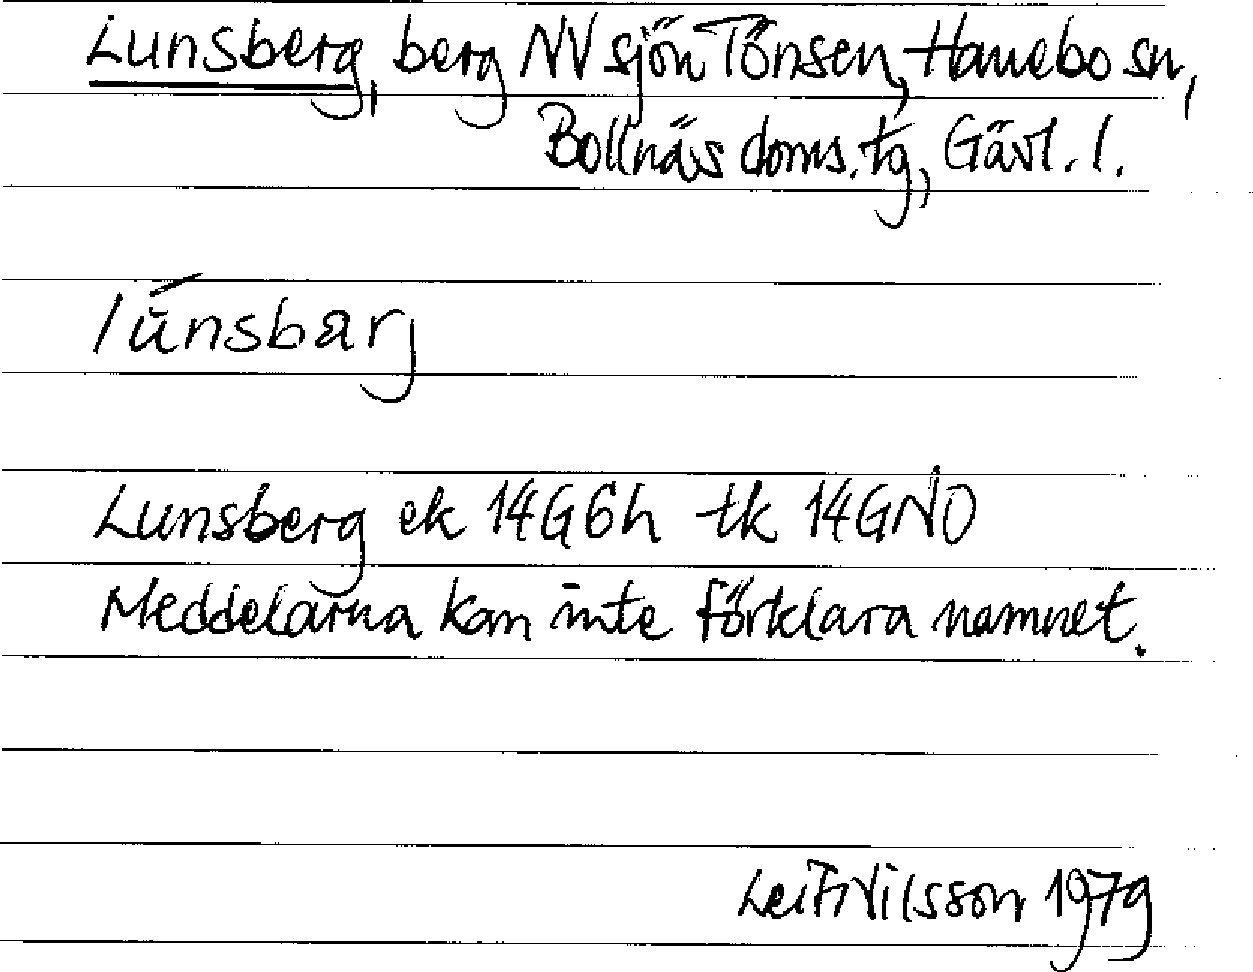 Lunsberg, berg NV sjön Tönsen, Hanebo sn,
Bollnäs doms.tg, Gävl. l.
lúnsbarj
Lunsberg ek 14G6h tk 14GNO
Meddelarna kan inte förklara namnet.
Leif Nilsson 1979